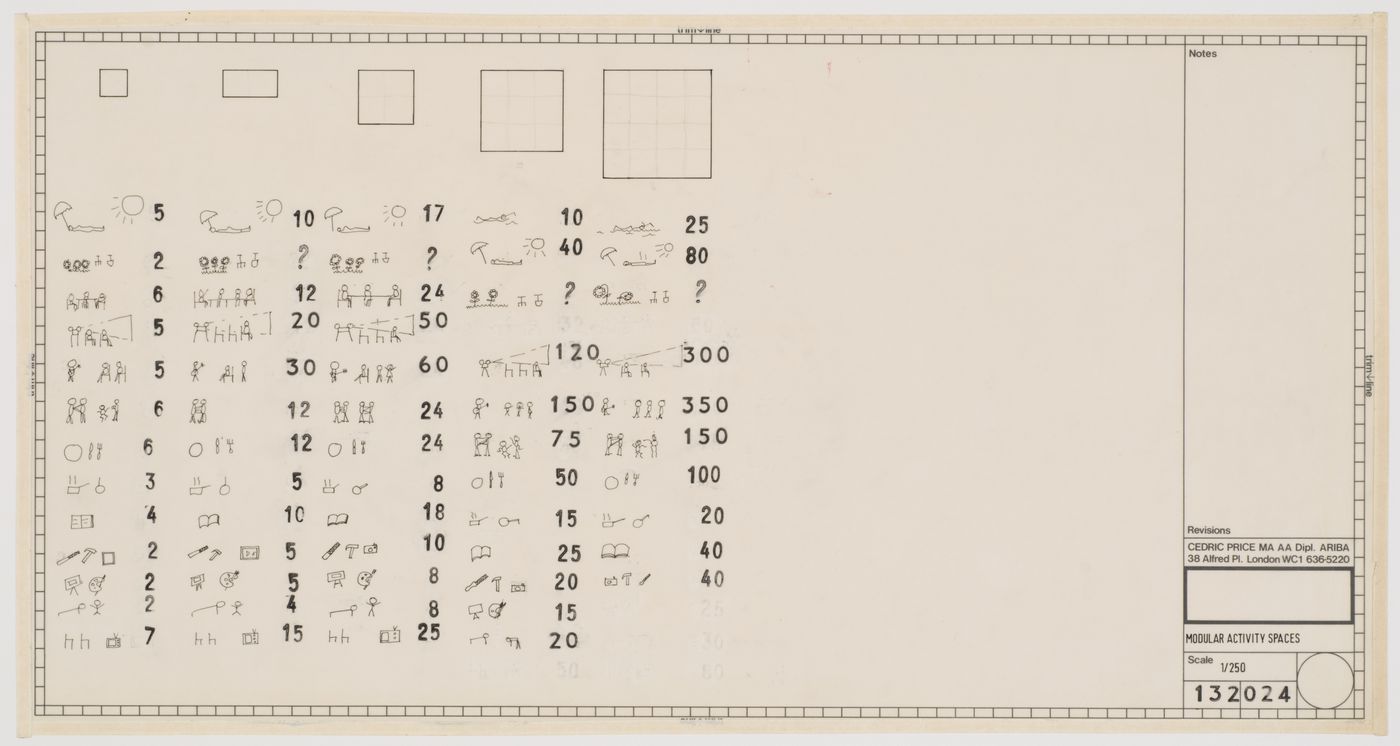 trim line
Notes
5 10 17 10 25
2 ? ? 40 80
6 12 24 ? ?
5 20 50 120 300
5 30 60 150 350
6 12 24 75 150
6 12 24 50 100
3 5 8 15 20
4 10 18 25 40
2 5 10 20 40
2 5 8 15
2 4 8 20
7 15 25
trim line
Revisions
CEDRIC PRICE MA AA Dipl. ARIBA
38 Alfred Pl. London WC1 636-5220
MODULAR ACTIVITY SPACES
Scale 1/250
132024